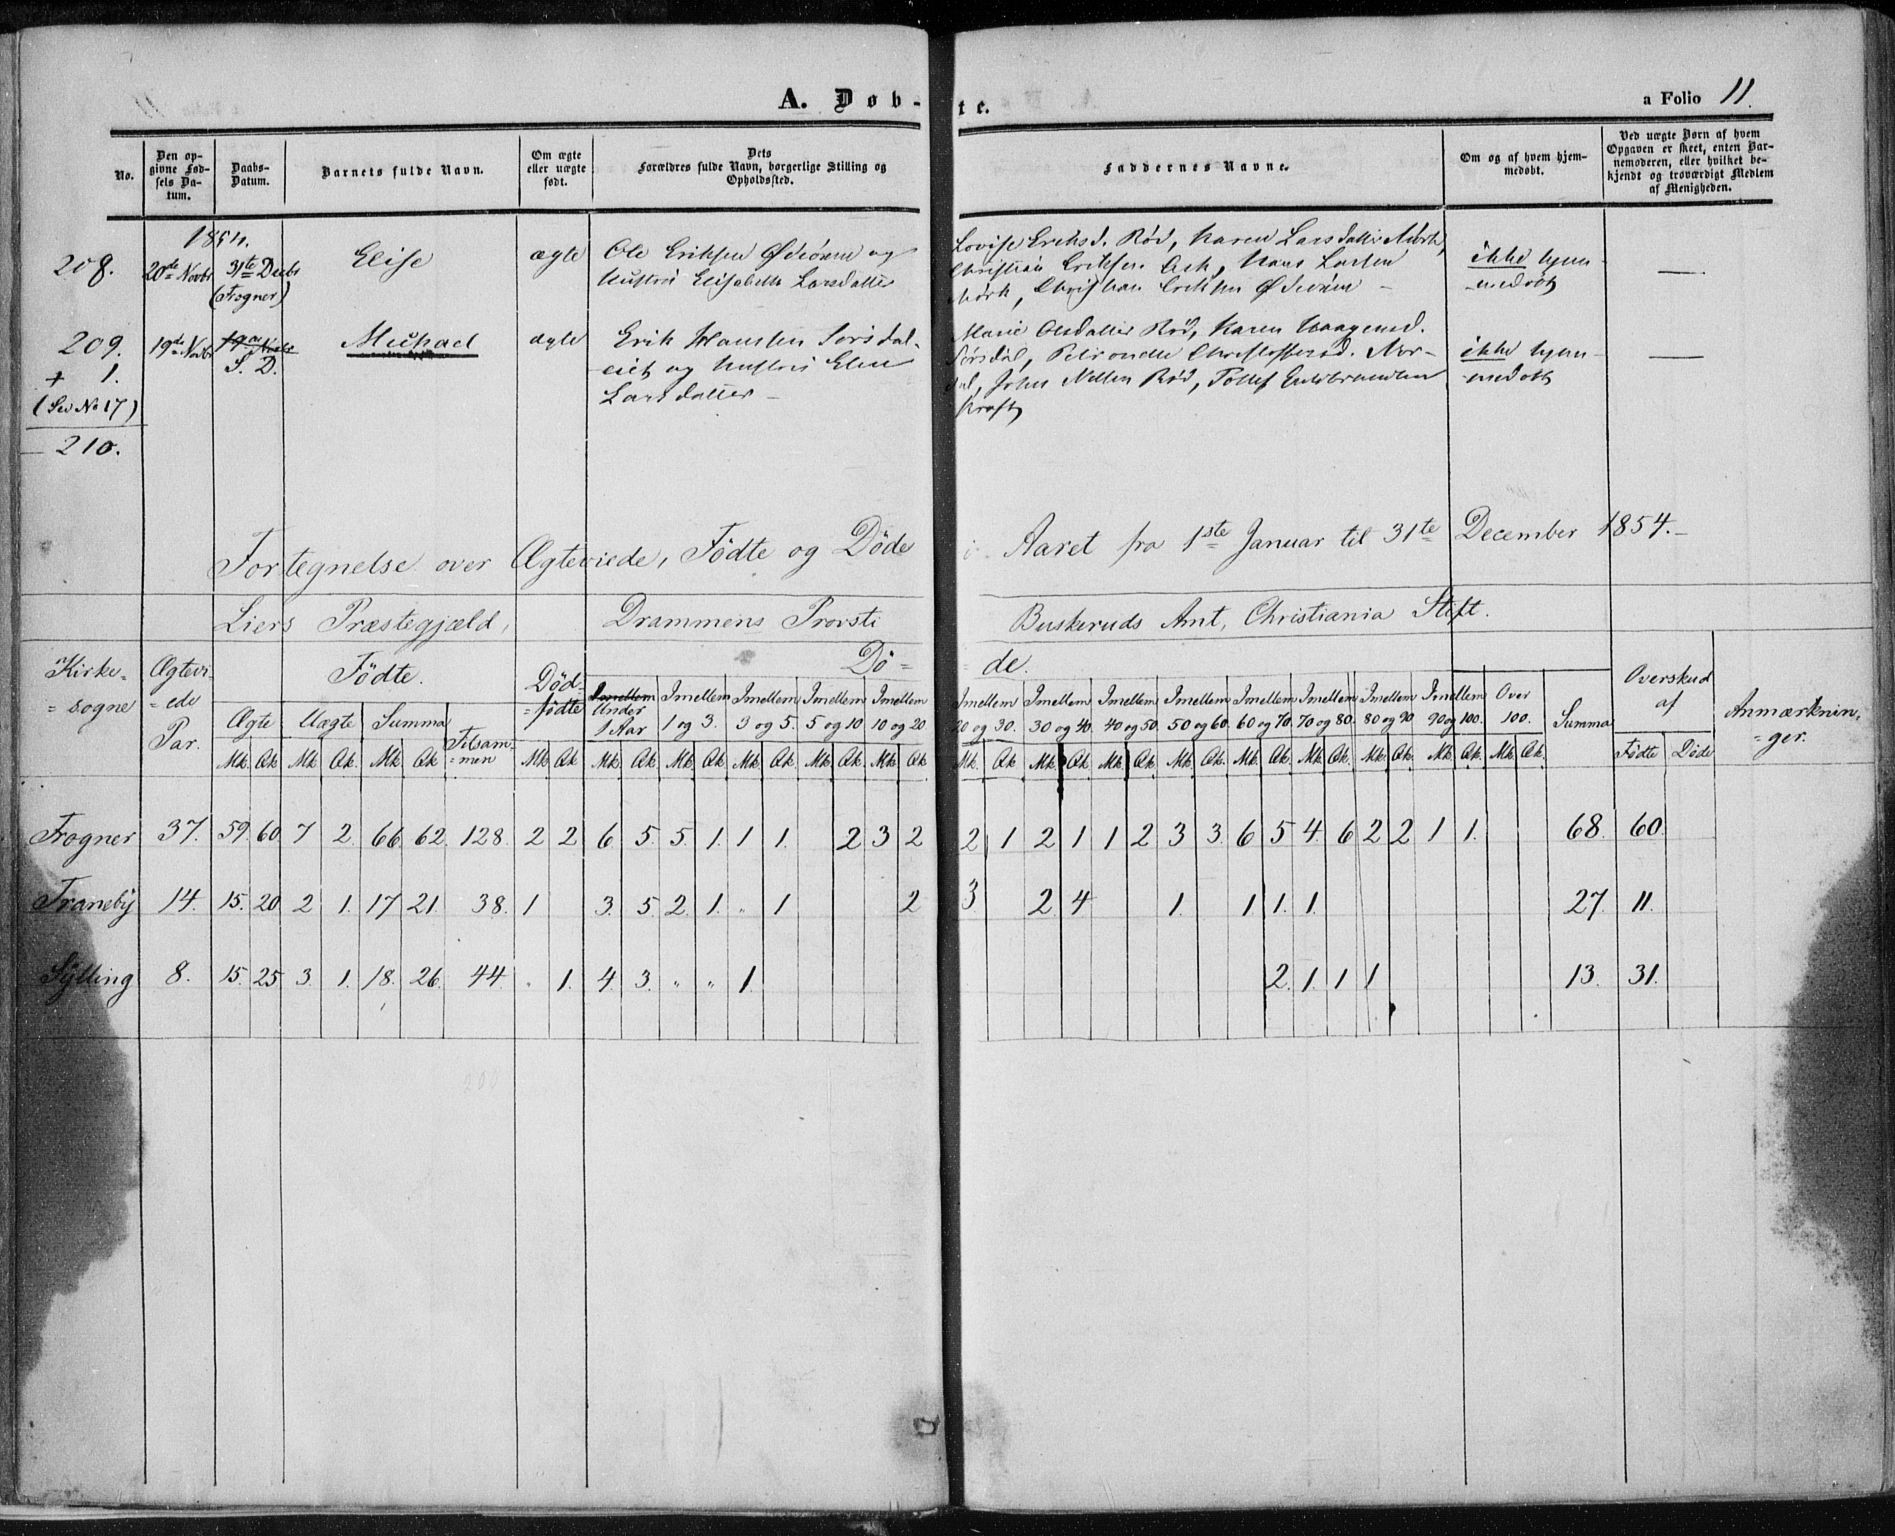 A. Døb-
te.
a Folio 11.
No.
Den op-
givne Fød-
sels Da-
tum.
Daabs-
Datum.
Barnets fulde Navn.
Om ægte
eller uægte
født.
Dets
Forældres fulde Navn, borgerlige Stilling og
Opholdssted.
Faddernes Navne.
Om og af hvem hjem-
medøbt.
Ved uægte Børn af hvem
Opgaven er skeet, enten Bar-
nemoderen, eller hvilket be-
kjendt og troværdigt Medlem
af Menigheden.
1854.
208.
20de Novbr
31te Decbr
(Frogner)
Elise
ægte
Ole Eriksen Ødevæm og
Hustru Elisabeth Larsdatter
Lovise Eriksd. Rød, Karen Larsdatter Mørk,
Christian Eriksen Ask, Hans Larsen
Mørk, Christian Eriksen
ikke hjem-
medøbt
209.
19de Novbr
S. D.
Michael
ægte
Erik Hansen Sørsdal-
eiet og Hustru Elen
Larsdatter
Marie Olsdatter Rød, Karen Haagensd.
Sørsdal, Petronelle Christoffersd. Nor-
dal, John Nilsen Rød, Tollef Guldbrandsen
Kraft
ikke hjem-
medøbt
+ 1.
(See No 17)
210.
Fortegnelse over Ægteviede, Fødte og Døde i Aaret fra 1ste Januar til 31te December 1854.
Liers Præstegjæld, Drammens Provsti Buskeruds Amt, Christiania Stift.
Kirke-
sogne
Ægtevi-
ede
Par.
Fødte.
Død-
fødte
Dø-
de.
Overskud
af
Anmærknin-
ger.
Ægte Uægte Summa Tilsam-
men
Imellem
Under
1 Aar
Imellem
1 og 3.
Imellem
3 og 5.
Imellem
5 og 10
Imellem
10 og 20
Imellem
20 og 30.
Imellem
30 og 40.
Imellem
40 og 50.
Imellem
50 og 60.
Imellem
60 og 70.
Imellem
70 og 80.
Imellem
80 og 90
Imellem
90 og 100.
Over
100.
Summa
Fødte Døde
Mk. Qk. Mk. Qk. Mk. Qk. Mk. Qk. Mk. Qk. Mk. Qk. Mk. Qk. Mk. Qk. Mk. Qk.
Mk. Qk. Mk. Qk. Mk. Qk. Mk. Qk. Mk. Qk. Mk. Qk. Mk. Qk. Mk. Qk. Mk. Qk.
Frogner 37. 59. 60. 7 2. 66 62. 128. 2 2 6 5 5. 1. 1 1. 2 3 2 2 1 2 1 1 2 3 3. 6 5 4. 6 2 2 1 1. 68. 60.
Traneby 14. 15. 20 2 1. 17 21. 38. 1 3. 5 2. 1. " 1 2 3 2 4 1. 1 1. 1. 27. 11.
Sylling 8. 15. 25 3. 1. 18. 26. 44. " 1. 4. 3. " " 1. 2. 1. 1 1 13. 31.